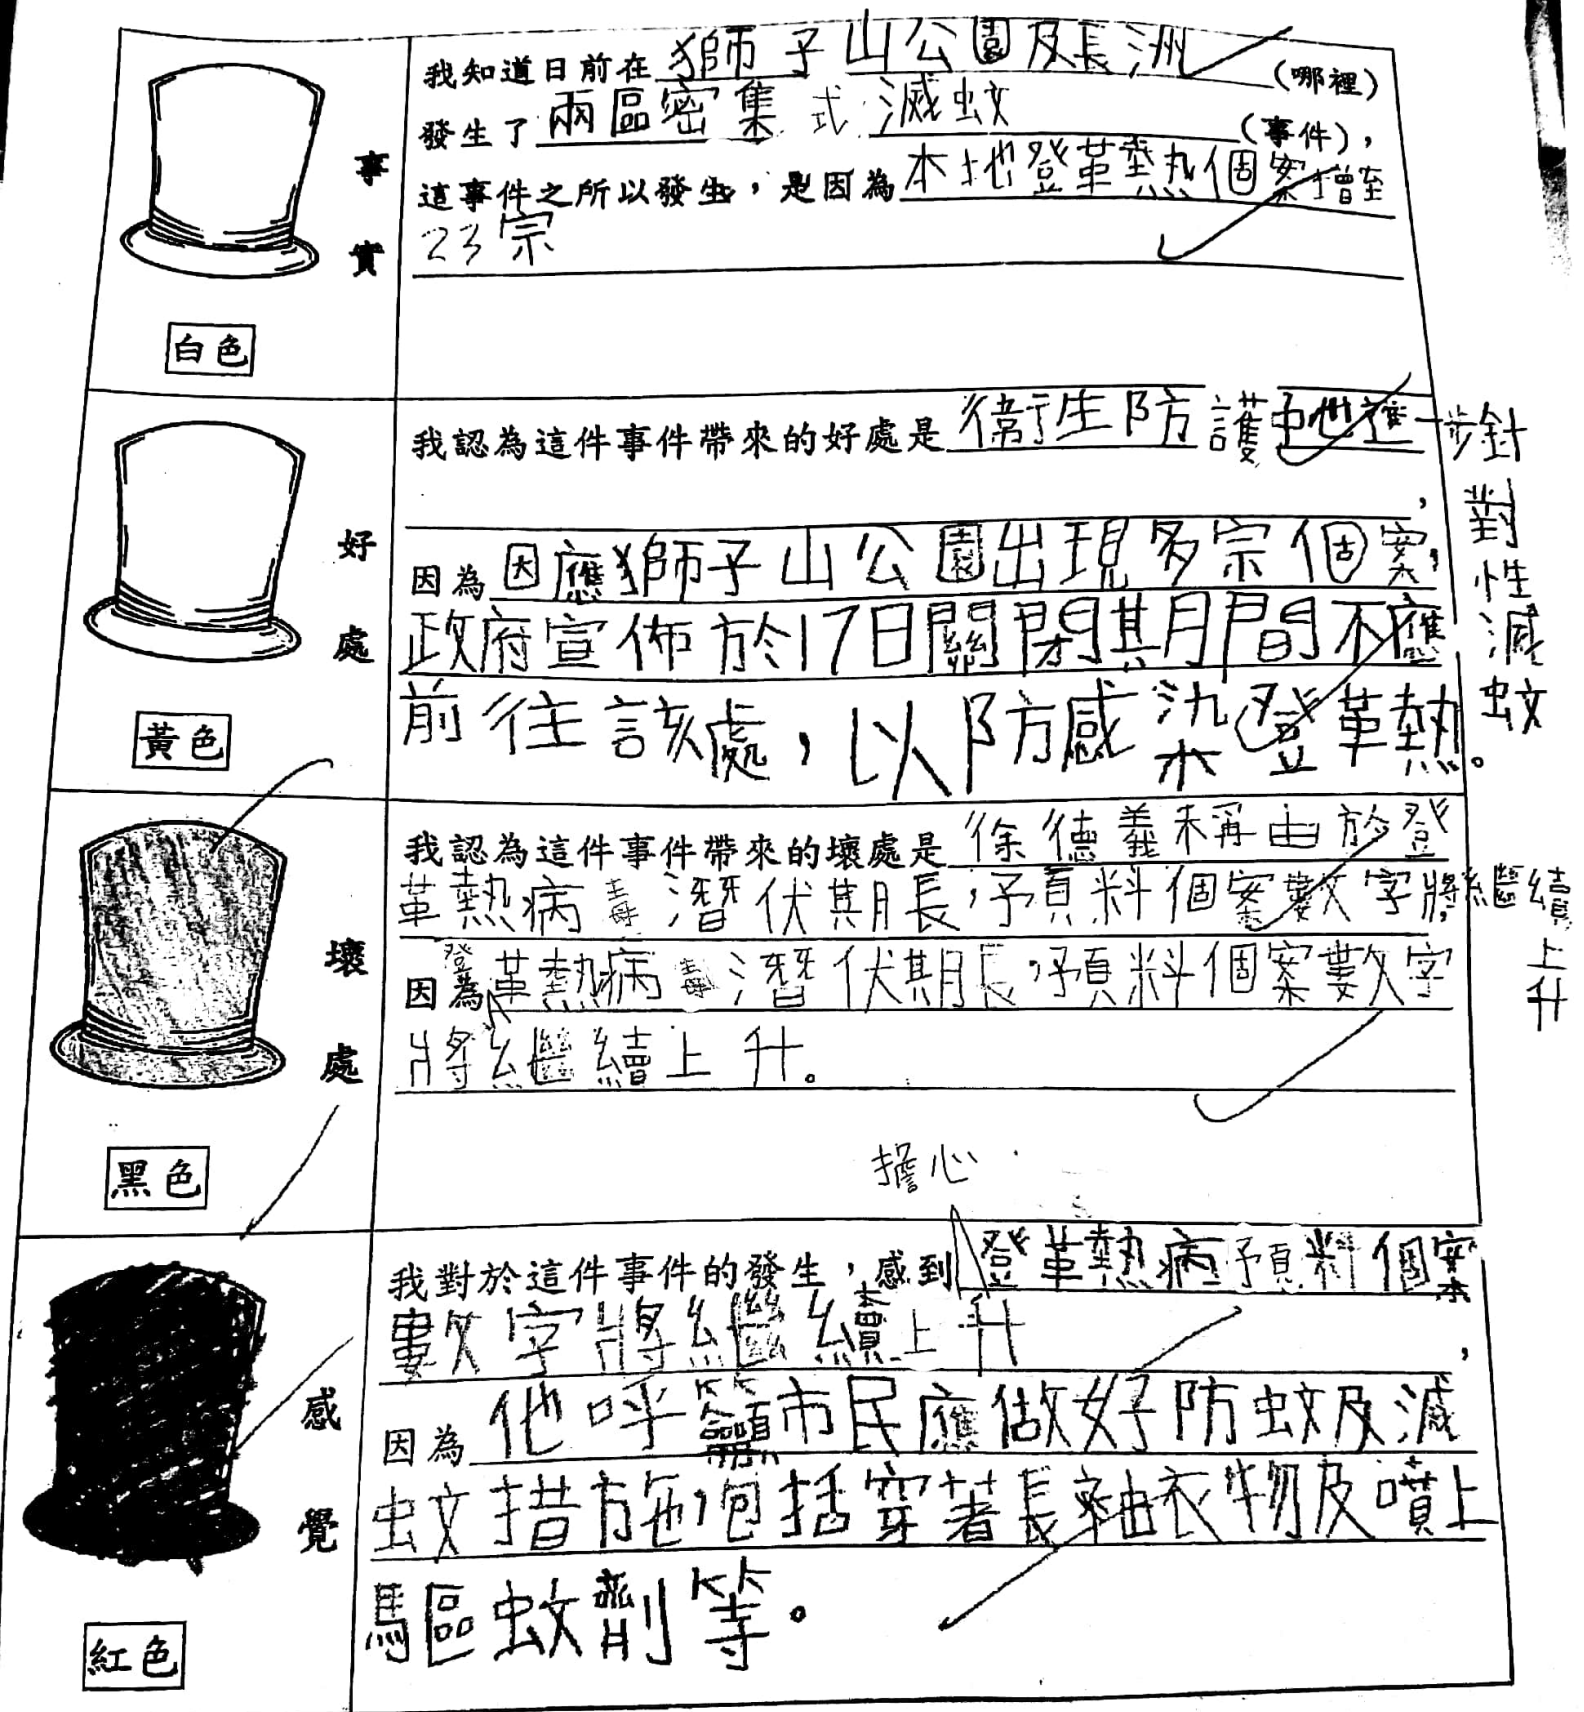 我知道日前在獅子山公園及長洲(哪裡)
發生了兩區密集式滅蚊(事件)，
這事件之所以發生，是因為本地登革熱個案增至
23宗
事實
白色
我認為這件事件帶來的好處是衛生防護也進一步針對性滅蚊，
因為因應獅子山公園出現多宗個案，
政府宣佈於17日關閉其月間不應
前往該處，以防感染登革熱。
好處
黃色
我認為這件事件帶來的壞處是徐德義稱由於登
革熱病毒潛伏期長，予預料個案數字將繼續上升，
因為登革熱病毒潛伏期長，予預料個案數字
將繼續上升。
壞處
黑色
擔心
我對於這件事件的發生，感到登革熱病予預料個案
數字將繼續上升，
因為他呼籲市民應做好防蚊及滅
蚊措施，包括穿著長袖衣物及噴上
驅蚊劑等。
感覺
紅色